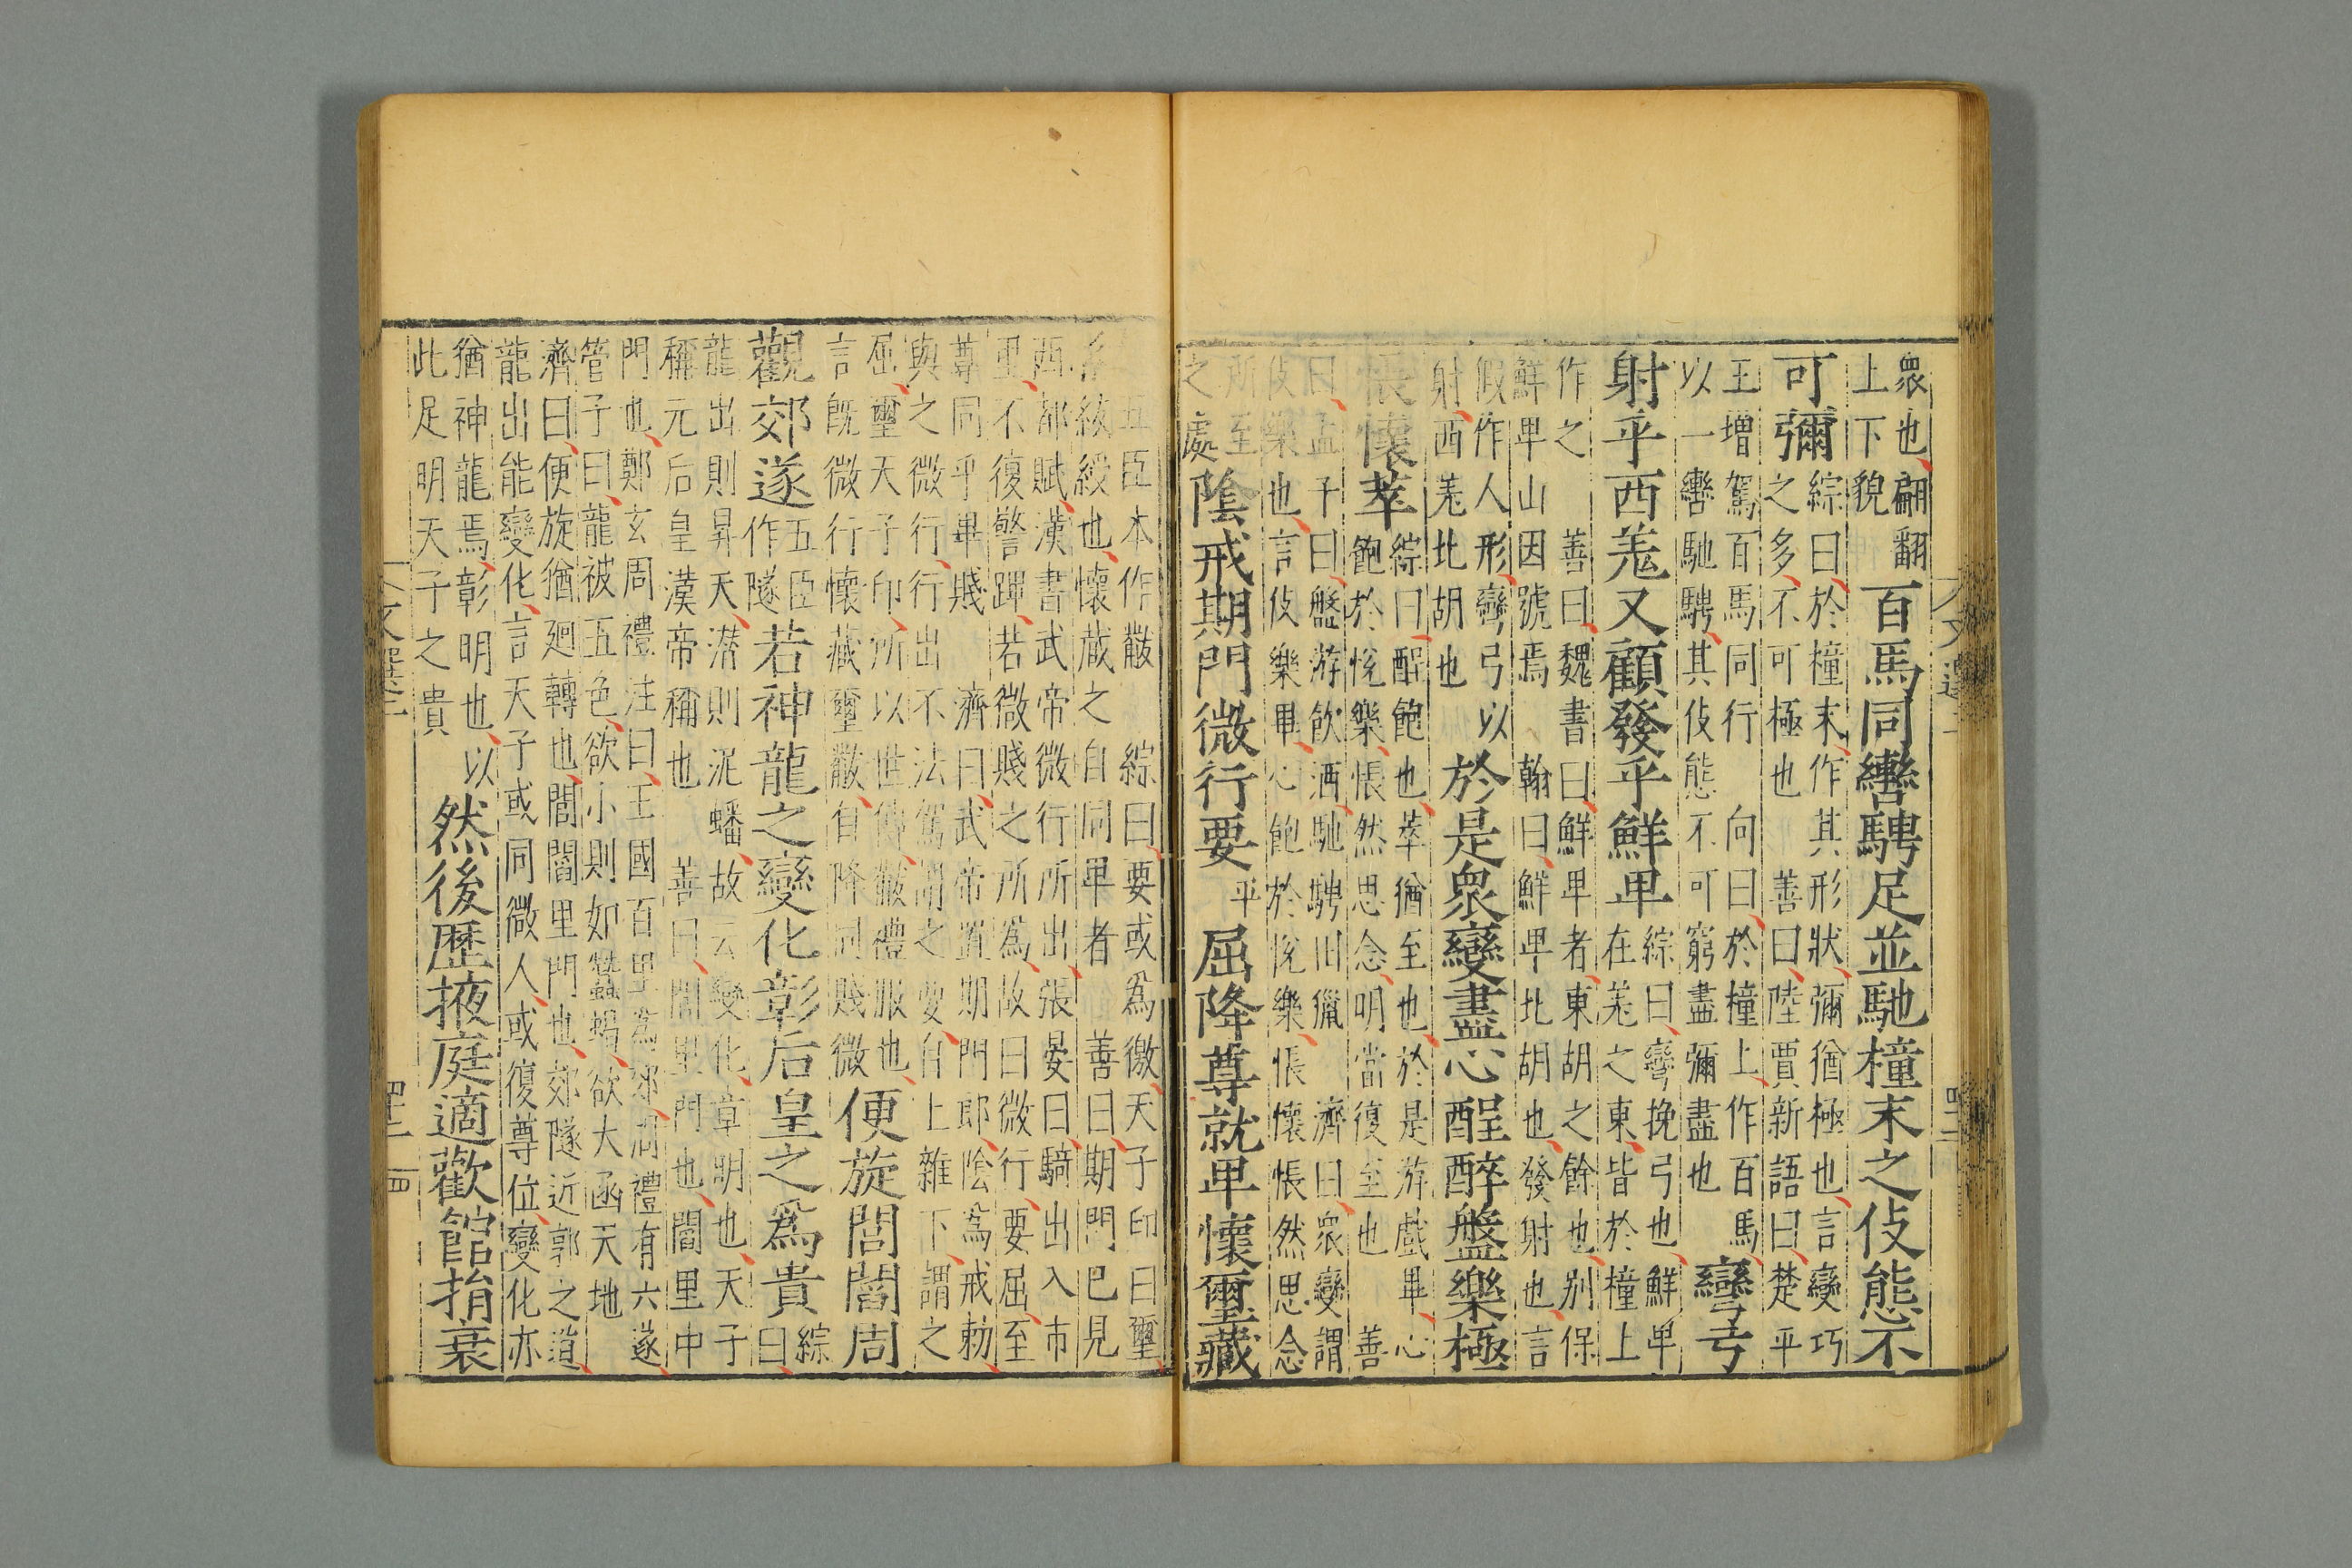 衆也翩翻
上下貌
百馬同轡騁足並馳橦末之伎態不
可彌
綜曰於橦末作其形狀彌猶極也言變巧
之多不可極也 善曰陸賈新語曰楚平
王增駕百馬同行 向曰於橦上作百馬
以一轡馳騁其伎態不可窮盡彌盡也
彎弓
射乎西羗又顧發乎鮮卑
綜曰彎挽弓也鮮卑
在羗之東皆於橦上
作之 善曰魏書曰鮮卑者東胡之餘也别保
鮮卑山因號焉 翰曰鮮卑北胡也發射也言
假作人形彎弓以
射西羗北胡也
於是衆變盡心酲醉盤樂極
悵懷萃
綜曰酲飽也萃猶至也於是游戲畢心
飽於悅樂悵然思念明當復至也 善
曰孟子曰盤游飲酒馳騁田獵 濟曰衆變謂
伎樂也言伎樂畢心飽於悅樂悵懷悵然思念
所至
之處
陰戒期門微行要
平
屈降尊就卑懷璽藏
五臣本作黻 綜曰要或為徼天子印曰璽
紱綬也懷藏之自同卑者 善曰期門已見
西都賦漢書武帝微行所出張晏曰騎出入市
里不復警蹕若微賤之所為故曰微行要屈至
尊同乎卑賤 濟曰武帝置期門郎陰為戒勅
與之微行行出不法駕謂之要自上雜下謂之
屈璽天子印所以世傳黻禮服也
言既微行懷藏璽黻自降同賤微
便旋閭閻周
觀郊遂
五臣
作隧
若神龍之變化彰后皇之為貴
綜
曰
龍出則昇天潜則泥蟠故云變化章明也天子
稱元后皇漢帝稱也 善曰閭里門也閻里中
門也鄭玄周禮注曰王國百里為郊周禮有六遂
管子曰龍被五色欲小則如蠶蠋欲大函天地
濟曰便旋猶廻轉也閭閻里門也郊隧近郭之道
龍出能變化言天子或同微人或復尊位變化亦
猶神龍焉彰明也以
此足明天子之貴
然後歷掖庭適歡館捐衰